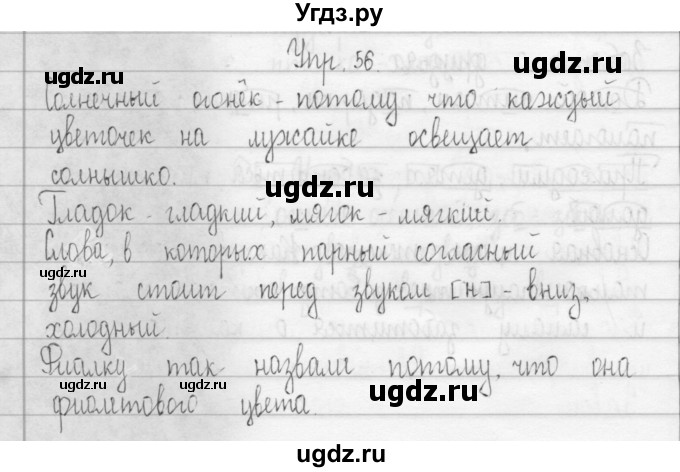 Угдз.ру
Упр. 56. ugdz.ru
ugdz.ru ugdz.ru
Солнечный огонёк - потому что каждый
цветочек на лужайке освещает
солнышко. ugdz.ru
Гладок - гладкий, мягок - мягкий.
Слова, в которых парный согласный
ugdz.ru
звук стоит перед звуком [н] - вниз,
ugdz.ru
холодный.
Фиалку так назвали потому, что она
ugdz.ru ugdz.ru ugdz.ru
фиолетового цвета.
ugdz.ru